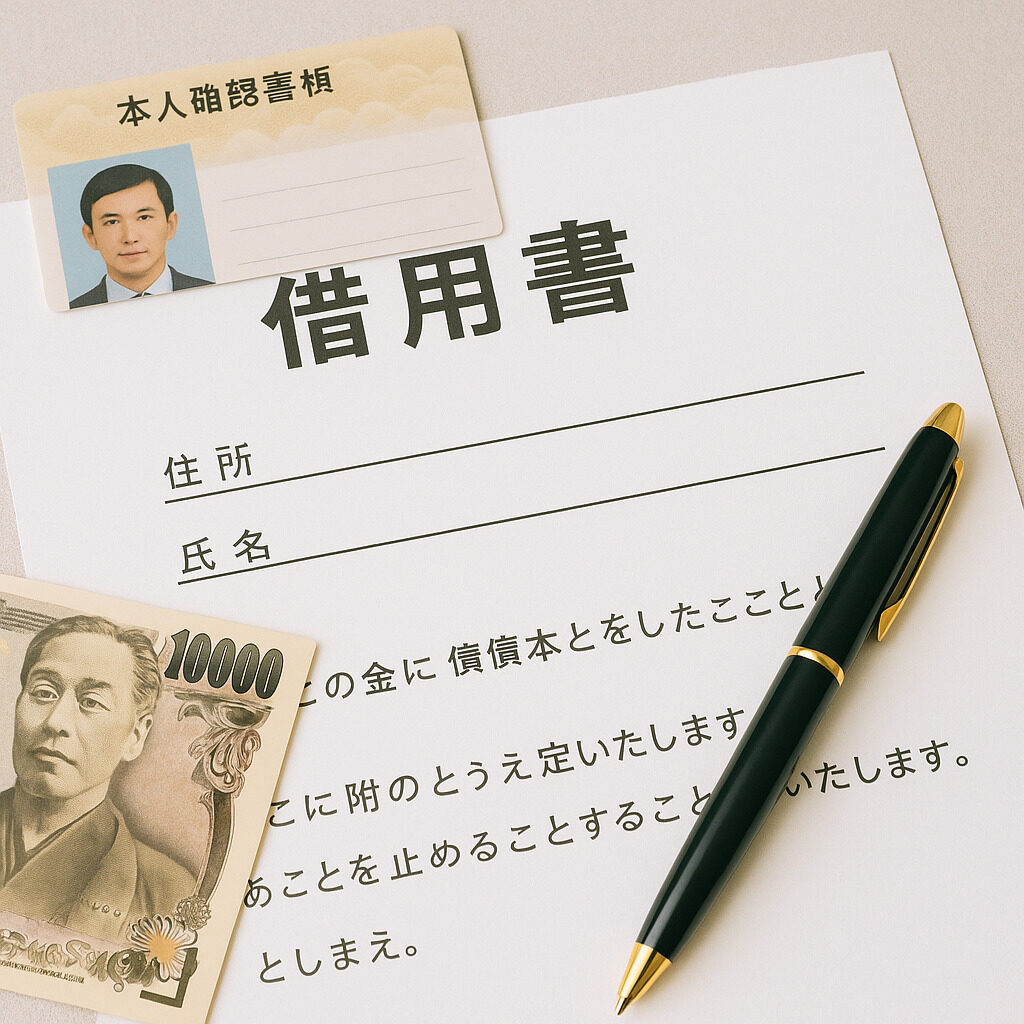 本人
借用書
住所
氏名
この金に債債本とをしたここと
こに附のとうえ定いたします
あことを止めることすること いたします。
としまえ。
10000